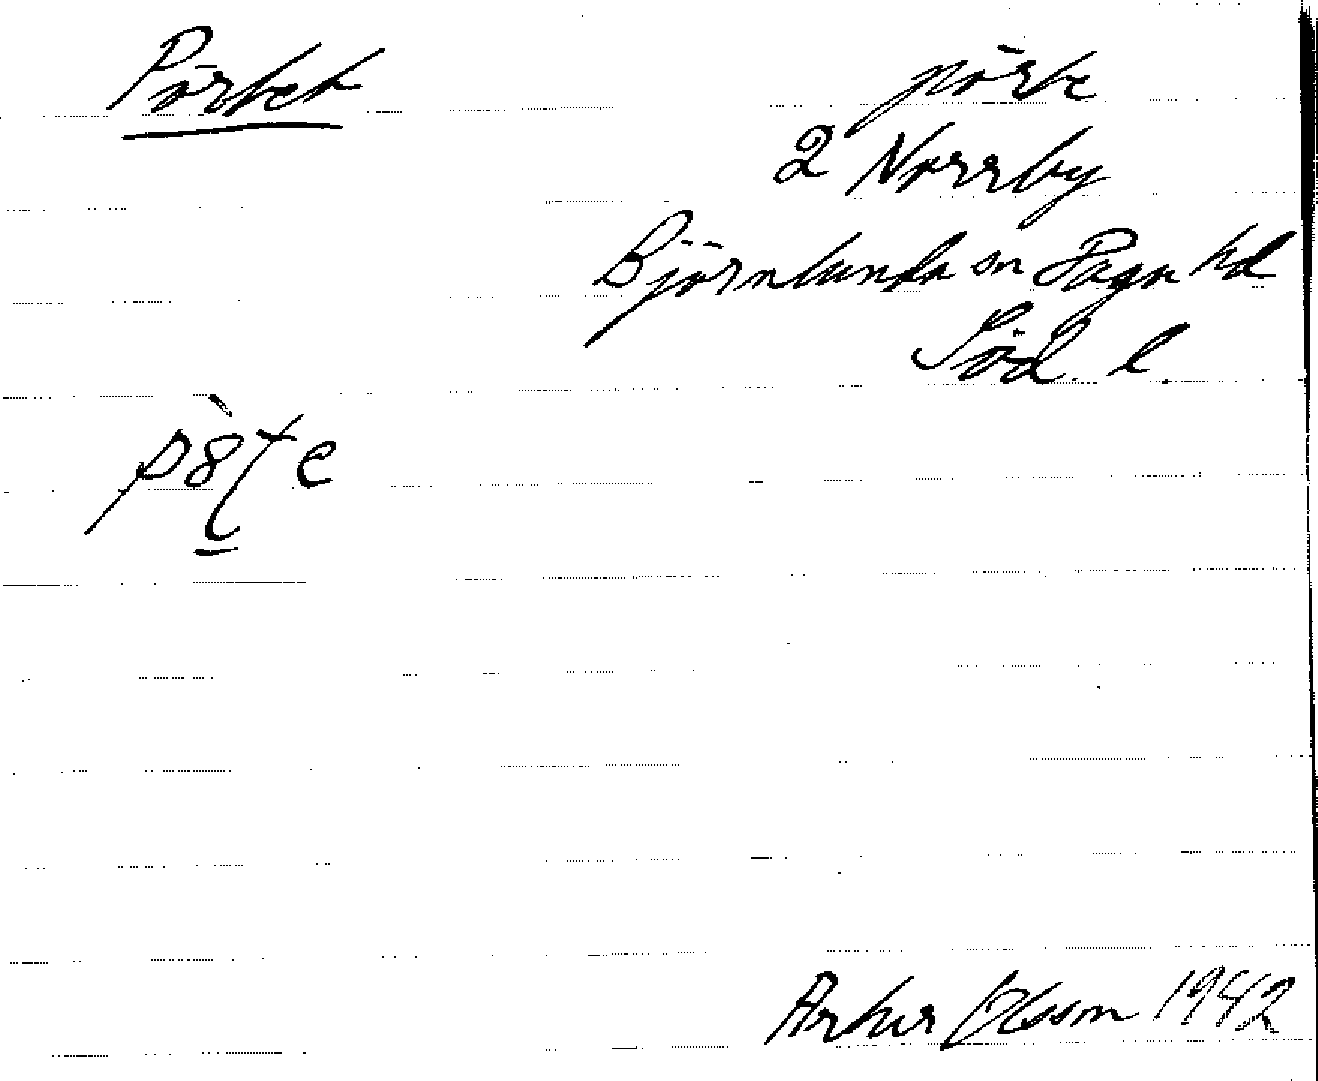 Pörtet
pörte
2 Norrby
Björnlunda sn Daga hd
Söd. l.
Artur Olsson 1942